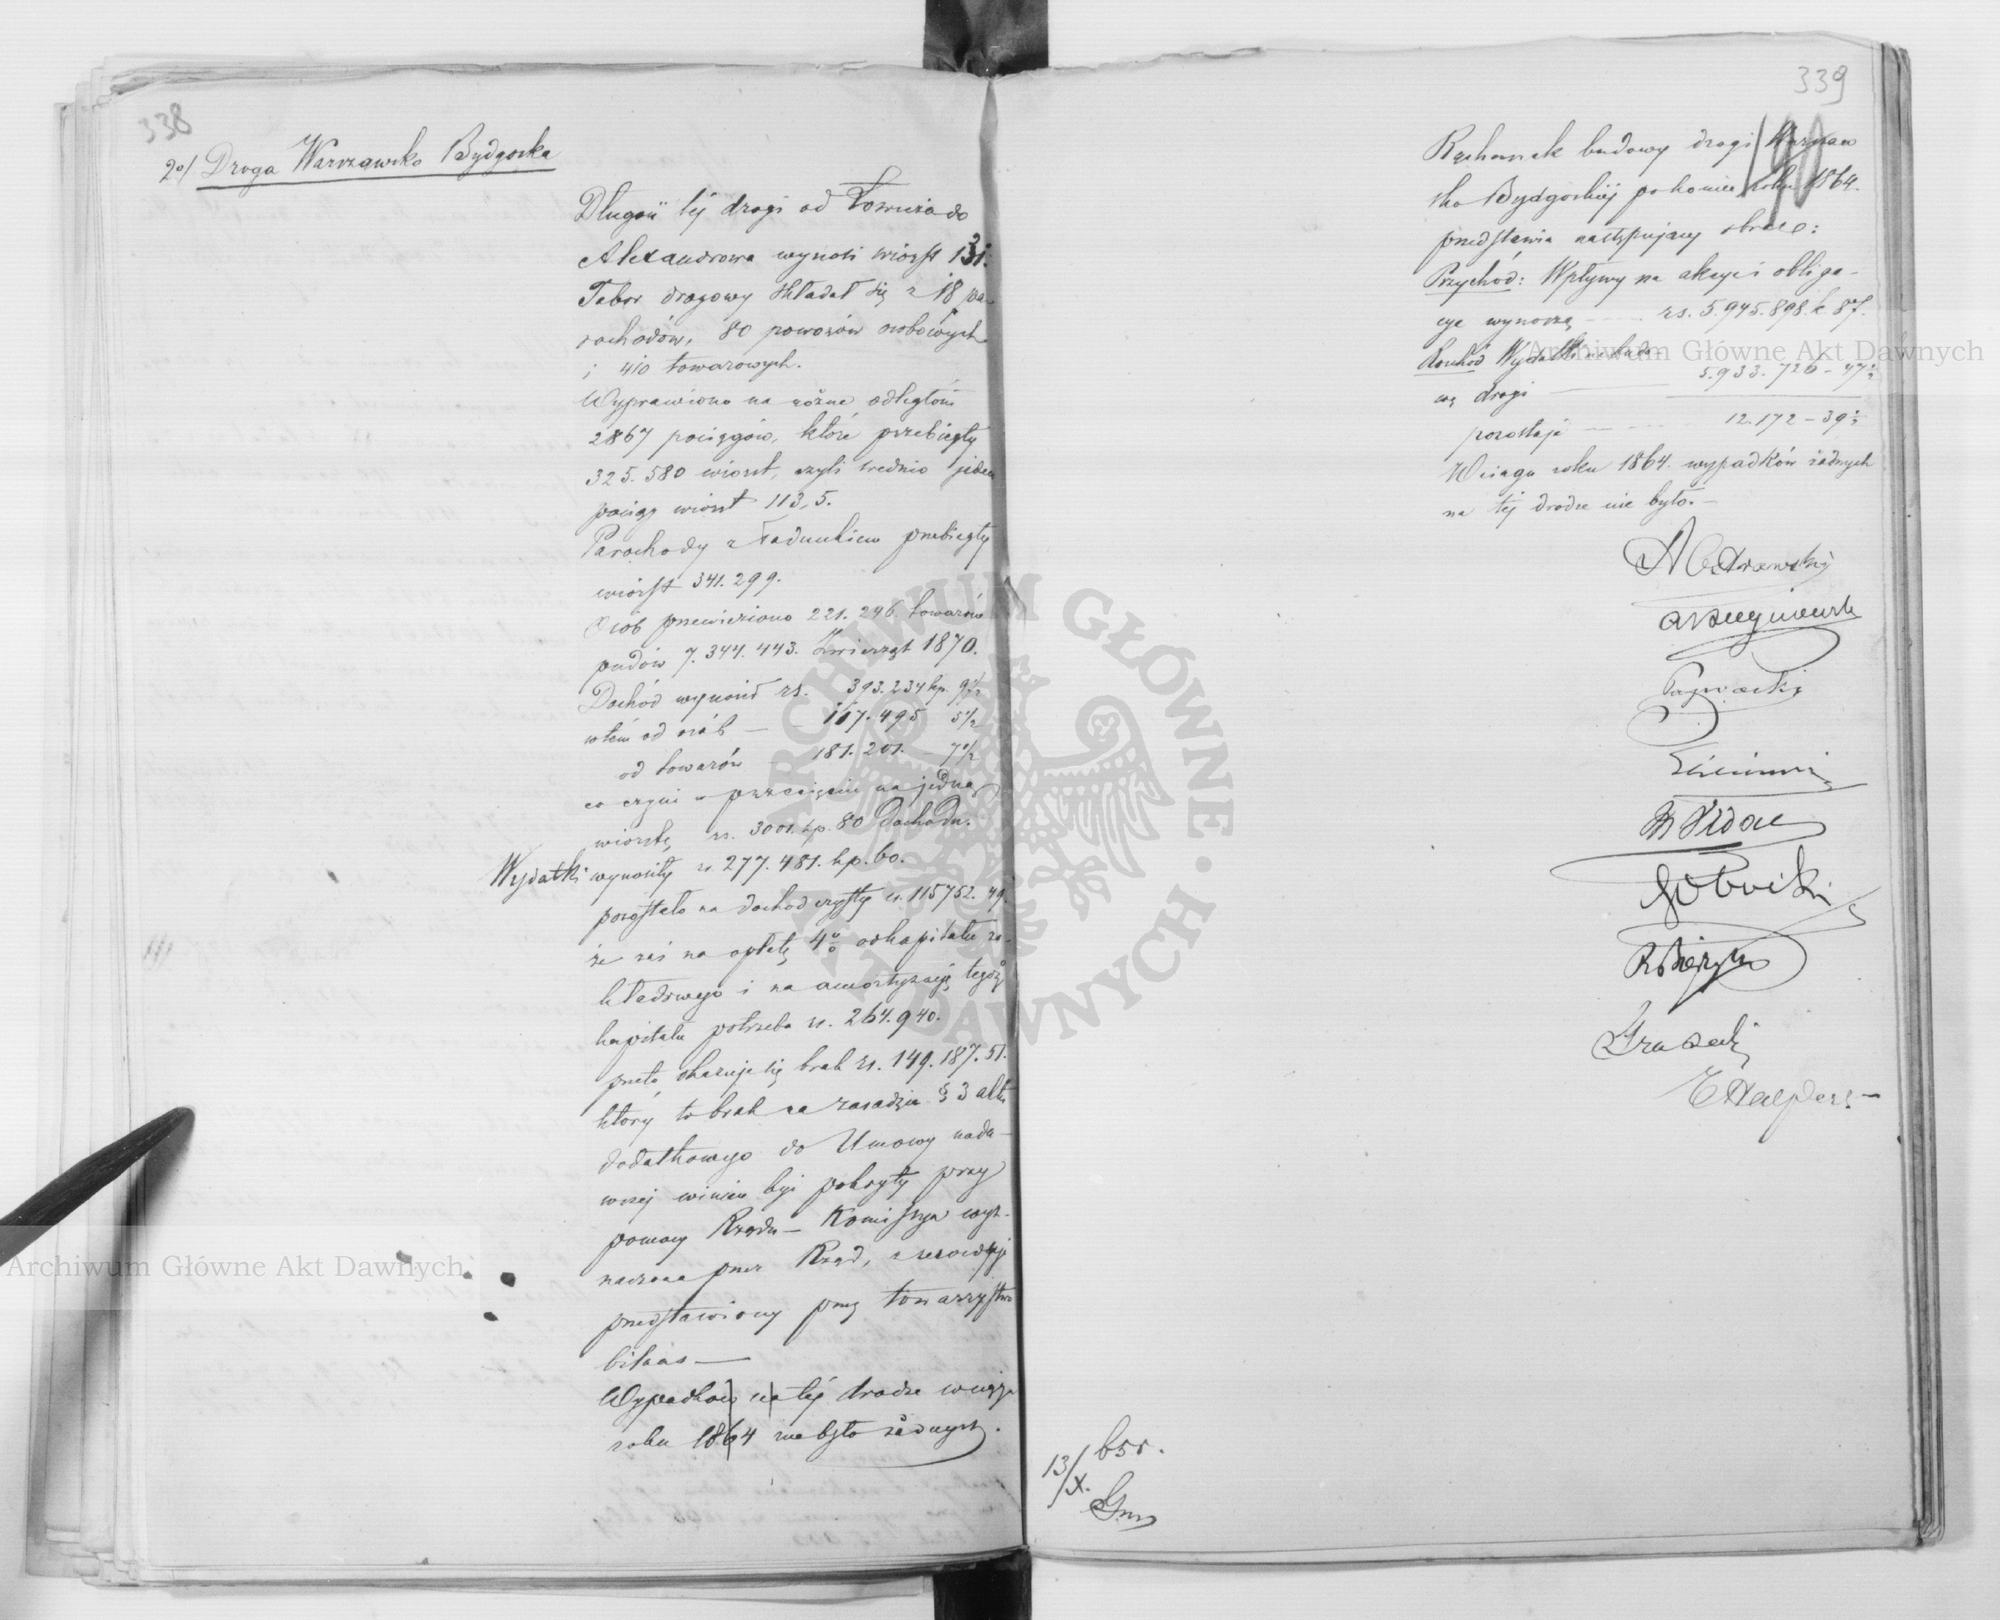 338
2o/ Droga Warszawsko Bydgoska
Długość tej drogi od Łowicza do
Alexandrowa wynosi wiorst 131.
Tabor drogowy składał się z 18 pa-
rochodów, 80 powozów osobowych
i 410 towarowych.
Wyprawiono na różne odległości
2867 pociągów, które przebiegły
325.580 wiorst, czyli średnio jeden
pociąg wiorst 113,5.
Parochody z ładunkiem przebiegły
wiorst 341.299.
Osób przewieziono 221.246. towarów
pudów 7.344.443. Zwierząt 1870.
Dochód wynosił rs. 393.234 kp. 9½
w tém od osób — 117.495 5½
od towarów — 181.201. — 7½
co czyni w przecięciu na jedną
wiorstę rs. 3001. kp. 80 dochodu.
Wydatki wynosiły rs. 277.481. kp. 60.
pozostało na dochod czysty rs. 115752. 49.
że zaś na opłatę 4% od kapitału za-
kładowego i na amortyzacją tegoż
kapitału potrzeba rs. 264.940.
przeto okazuje się brak rs. 149.187.51.
który to brak na zasadzie § 3 aktu
dodatkowego do Umowy nada-
wczej winien być pokryty przy
pomocy Rządu — Komissya wyz-
naczona przez Rząd, zrewiduje
przedstawiony przez towarzystwo
bilans —
Wypadków na tej drodze w ciągu
roku 1864 nie było żadnych.
339
190
Rachunek budowy drogi Warszaw
sko Bydgoskiej po koniec roku 1864.
przedstawia następujący obraz:
Przychód: Wpływy na akcye i obliga-
cye wynoszą — rs. 5.945.898. k. 87.
Rozchód Wydatki na budo-
wę drogi — 5.933.726 — 47½
pozostaje — 12.172 — 39½
W ciągu roku 1864. wypadków żadnych
na tej drodze nie było. —
13/X. b5r.
Archiwum Główne Akt Dawnych
Archiwum Główne Akt Dawnych
ARCHIWUM GŁÓWNE AKT DAWNYCH